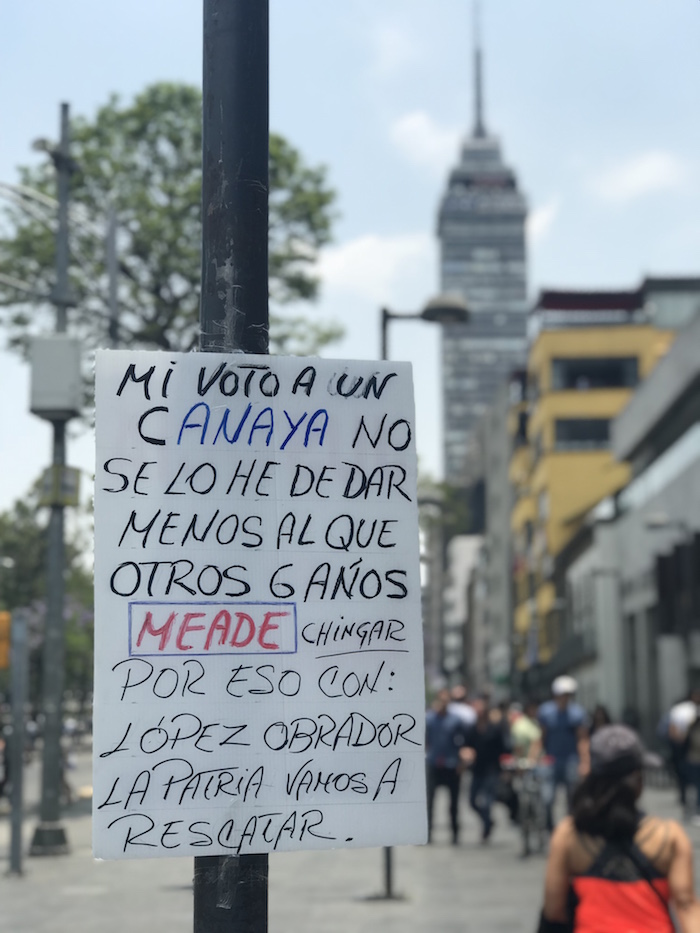 MI VOTO A UN
CANAYA NO
SE LO HE DE DAR
MENOS AL QUE
OTROS 6 AÑOS
MEADE CHINGAR
POR ESO CON:
LÓPEZ OBRADOR
LA PATRIA VAMOS A
RESCATAR.